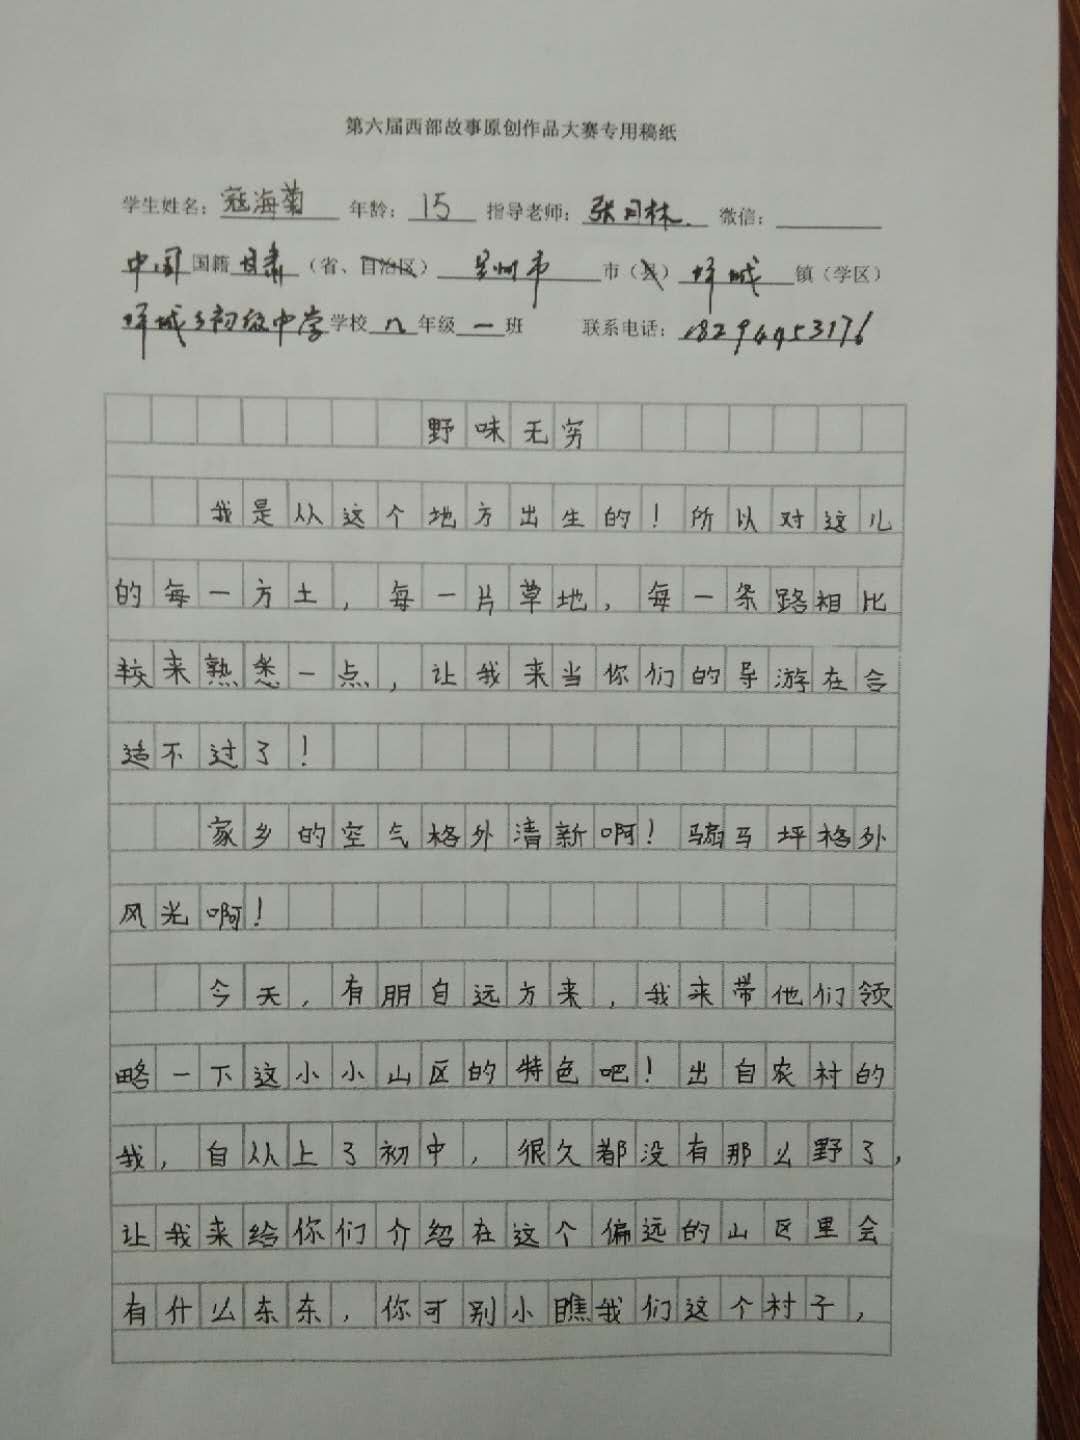 第六届西部故事原创作品大赛专用稿纸
学生姓名：寇海菊 年龄：15 指导老师：张月林 微信：
中国国籍 甘肃（省、自治区） 市（县） 坪城镇（学区）
坪城乡初级中学学校 八年级一班 联系电话：18294453176
野味无穷
我是从这个地方出生的！所以对这儿
的每一方土，每一片草地，每一条路相比
较来熟悉一点，让我来当你们的导游在合
适不过了！
家乡的空气格外清新啊！骟马坪格外
风光啊！
今天，有朋自远方来，我来带他们领
略一下这小小山区的特色吧！出自农村的
我，自从上了初中，很久都没有那么野了，
让我来给你们介绍在这个偏远的山区里会
有什么东东，你可别小瞧我们这个村子，